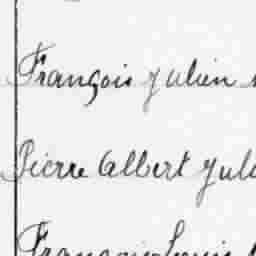 François Julien
Pierre Albert Jul
François Louis